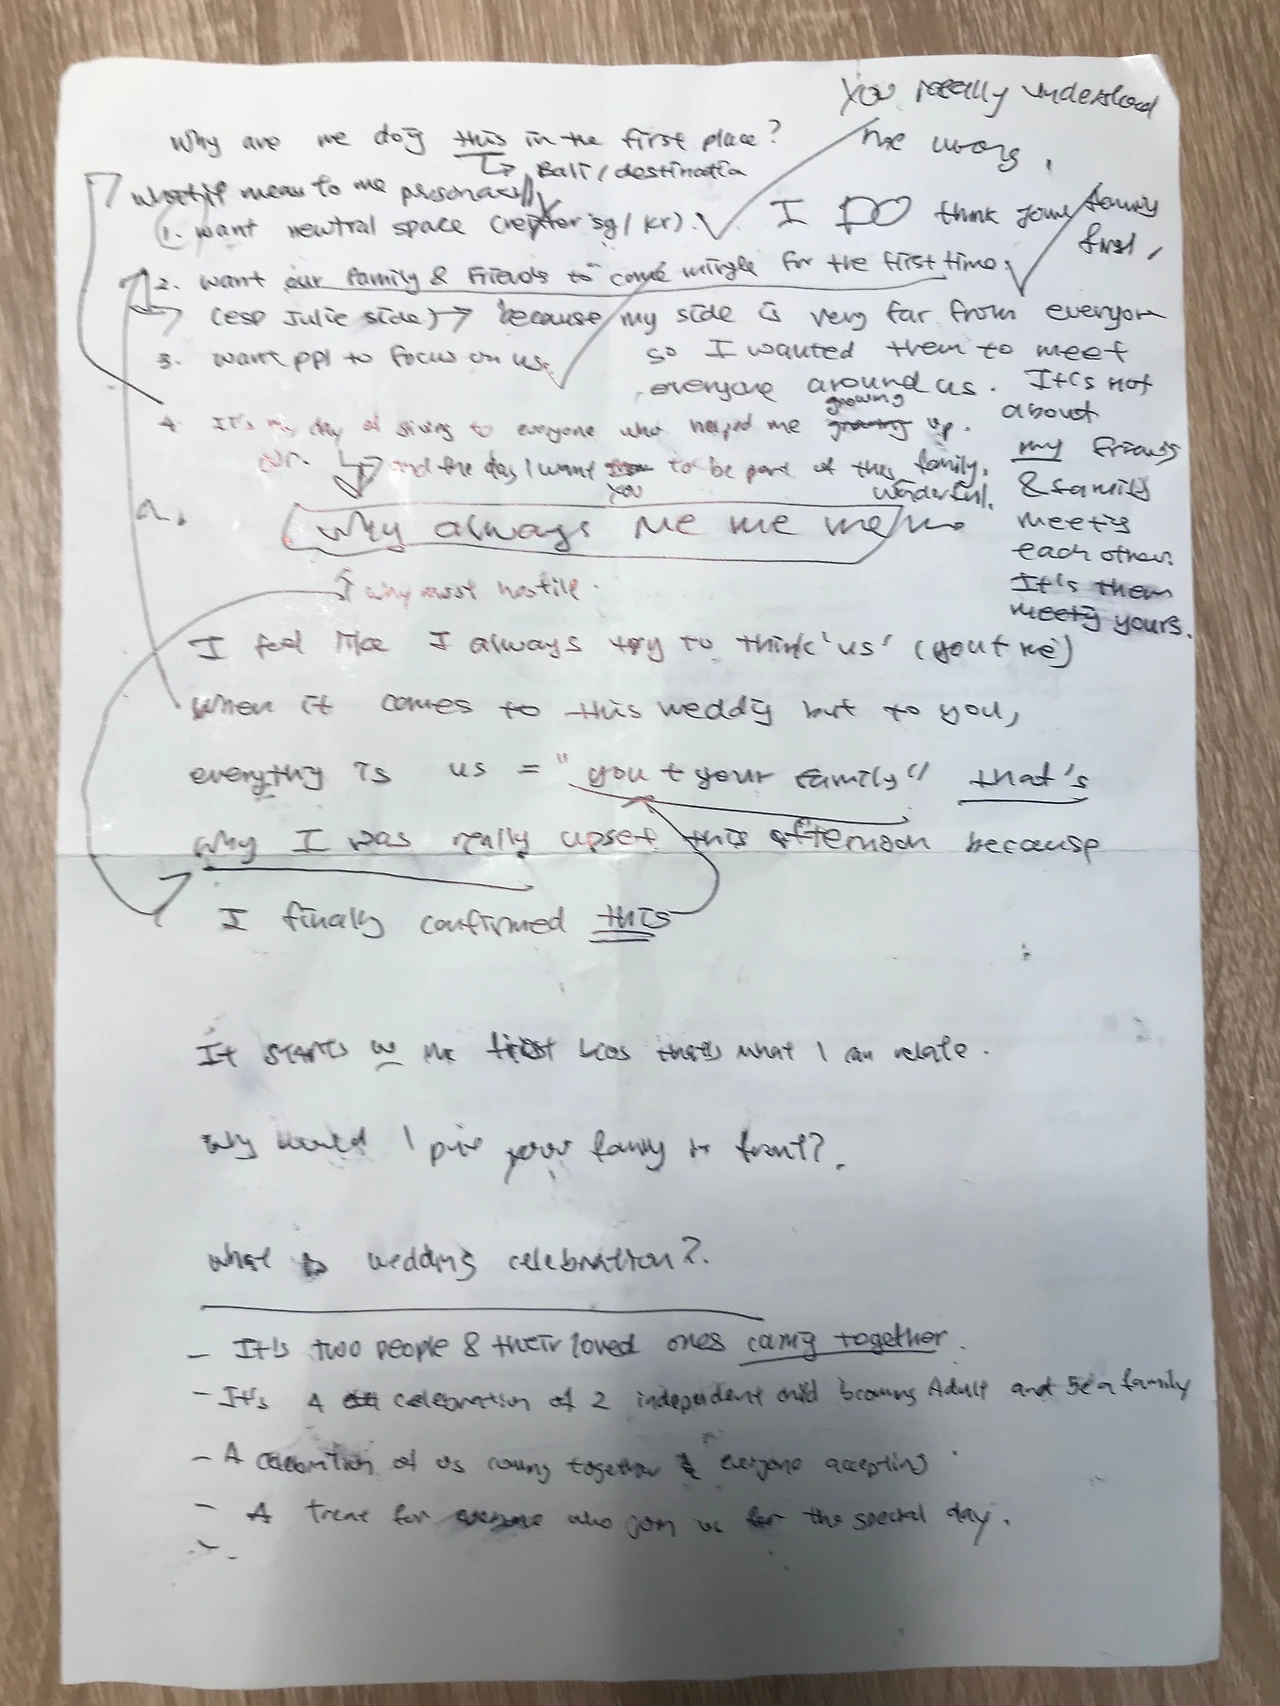 You really understood
me wrong.
Why are we doig this in the first place?
↳ Bali/destinatia
What it means to me personally
1. want neutral space (neither sg/kr). ✓
I DO think your family
first,
2. want our family & friends to come mingle for the first time. ✓
(esp Julie side) → because my side is very far from everyone
3. want ppl to focus on us. ✓
so I wanted them to meet
everyone around us. It's not
about
my friends
& family
meetig
each other.
It's them
meetig yours.
4. It's my day of giving to everyone who helped me growing up.
growing
and the day I want you to be part of this family.
wonderful.
a.
Why always me me me me
↑ why most hostile.
I feel like I always try to think 'us' (you+me)
when it comes to this weddig but to you,
everythig is us = "you + your family" that's
why I was really upset this afternoon because
I finally confirmed this
It starts w me first bcos that's what I can relate.
Why would I put your family in front?
What is wedding celebration?
- It's two people & their loved ones comig together.
- It's A celebration of 2 independent child becoming Adult and be a family
- A celebration of us coming together & everyone accepting
- A treat for everyone who join us for the special day.
-